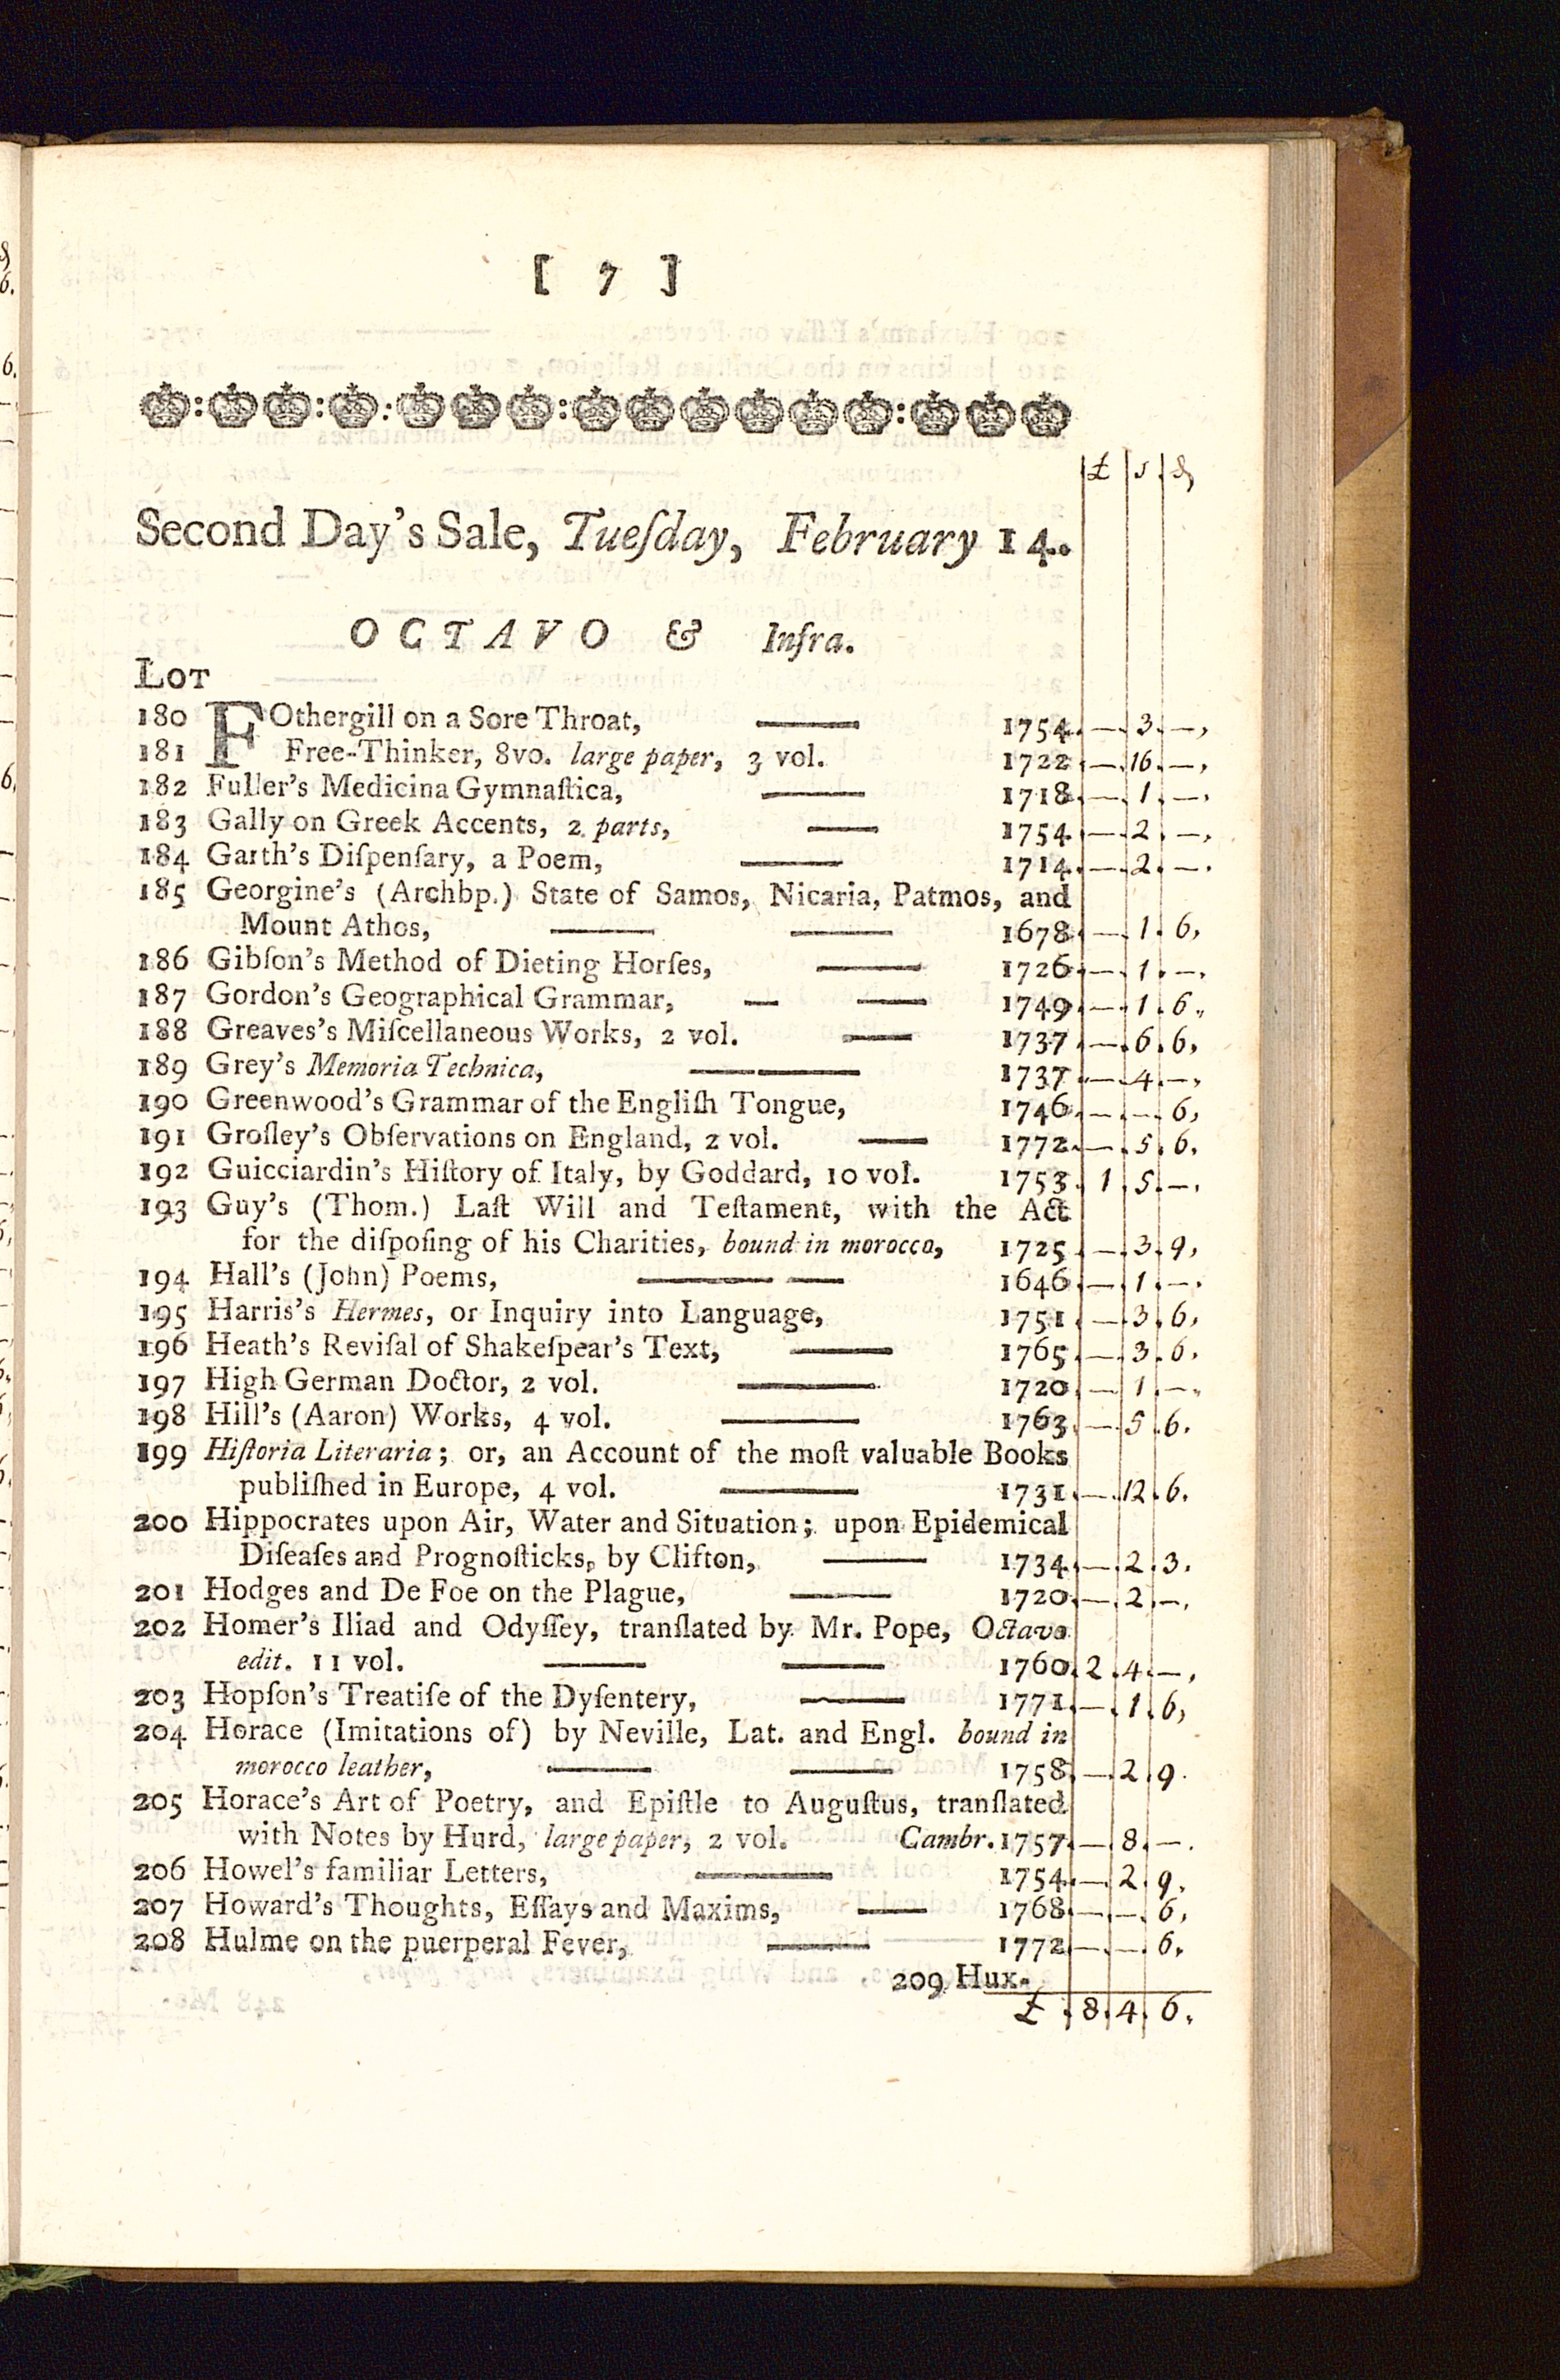 [ 7 ]
£ s d
Second Day's Sale, Tueſday, February 14.
OCTAVO & Infra.
LOT
180 FOthergill on a Sore Throat, —— 1754. — . 3 . — ,
181 Free-Thinker, 8vo. large paper, 3 vol. 1722 . — . 16 . — ,
182 Fuller's Medicina Gymnaſtica, —— 1718 . — . 1 . — ,
183 Gally on Greek Accents, 2 parts, —— 1754 . — . 2 . — ,
184 Garth's Diſpenſary, a Poem, —— 1714 . — . 2 . — .
185 Georgine's (Archbp.) State of Samos, Nicaria, Patmos, and
Mount Athos, —— —— 1678 . — . 1 . 6,
186 Gibſon's Method of Dieting Horſes, —— 1726 . — . 1 . — ,
187 Gordon's Geographical Grammar, — —— 1749 . — . 1 . 6,
188 Greaves's Miſcellaneous Works, 2 vol. —— 1737 . — . 6 . 6,
189 Grey's Memoria Technica, —— —— 1737 . — . 4 . — ,
190 Greenwood's Grammar of the Engliſh Tongue, 1746 . — . — . 6,
191 Groſley's Obſervations on England, 2 vol. —— 1772 . — . 5 . 6.
192 Guicciardin's Hiſtory of Italy, by Goddard, 10 vol. 1753 . 1 . 5 . — .
193 Guy's (Thom.) Laſt Will and Teſtament, with the Act
for the diſpoſing of his Charities, bound in morocco, 1725 . — . 3 . 9,
194 Hall's (John) Poems, —— —— 1646 . — . 1 . — .
195 Harris's Hermes, or Inquiry into Language, 1751 . — . 3 . 6,
196 Heath's Reviſal of Shakeſpear's Text, —— 1765 . — . 3 . 6 .
197 High German Doctor, 2 vol. —— 1720 . — . 1 . — ,
198 Hill's (Aaron) Works, 4 vol. —— 1763 . — . 5 . 6.
199 Hiſtoria Literaria; or, an Account of the moſt valuable Books
publiſhed in Europe, 4 vol. —— 1731 . — . 12 . 6.
200 Hippocrates upon Air, Water and Situation; upon Epidemical
Diſeaſes and Prognoſticks, by Clifton, —— 1734 . — . 2 . 3.
201 Hodges and De Foe on the Plague, —— 1720 . — . 2 . — ,
202 Homer's Iliad and Odyſſey, tranſlated by Mr. Pope, Octavo
edit. 11 vol. —— —— 1760 . 2 . 4 . — ,
203 Hopſon's Treatiſe of the Dyſentery, —— 1771 . — . 1 . 6,
204 Horace (Imitations of) by Neville, Lat. and Engl. bound in
morocco leather, —— —— 1758 . — . 2 . 9.
205 Horace's Art of Poetry, and Epiſtle to Auguſtus, tranſlated
with Notes by Hurd, large paper, 2 vol. Cambr. 1757 . — . 8 . — .
206 Howel's familiar Letters, —— 1754 . — . 2 . 9,
207 Howard's Thoughts, Eſſays and Maxims, —— 1768 . — . — . 6,
208 Hulme on the puerperal Fever, —— 1772 . — . — . 6.
209 Hux-
£ . 8 . 4 . 6.